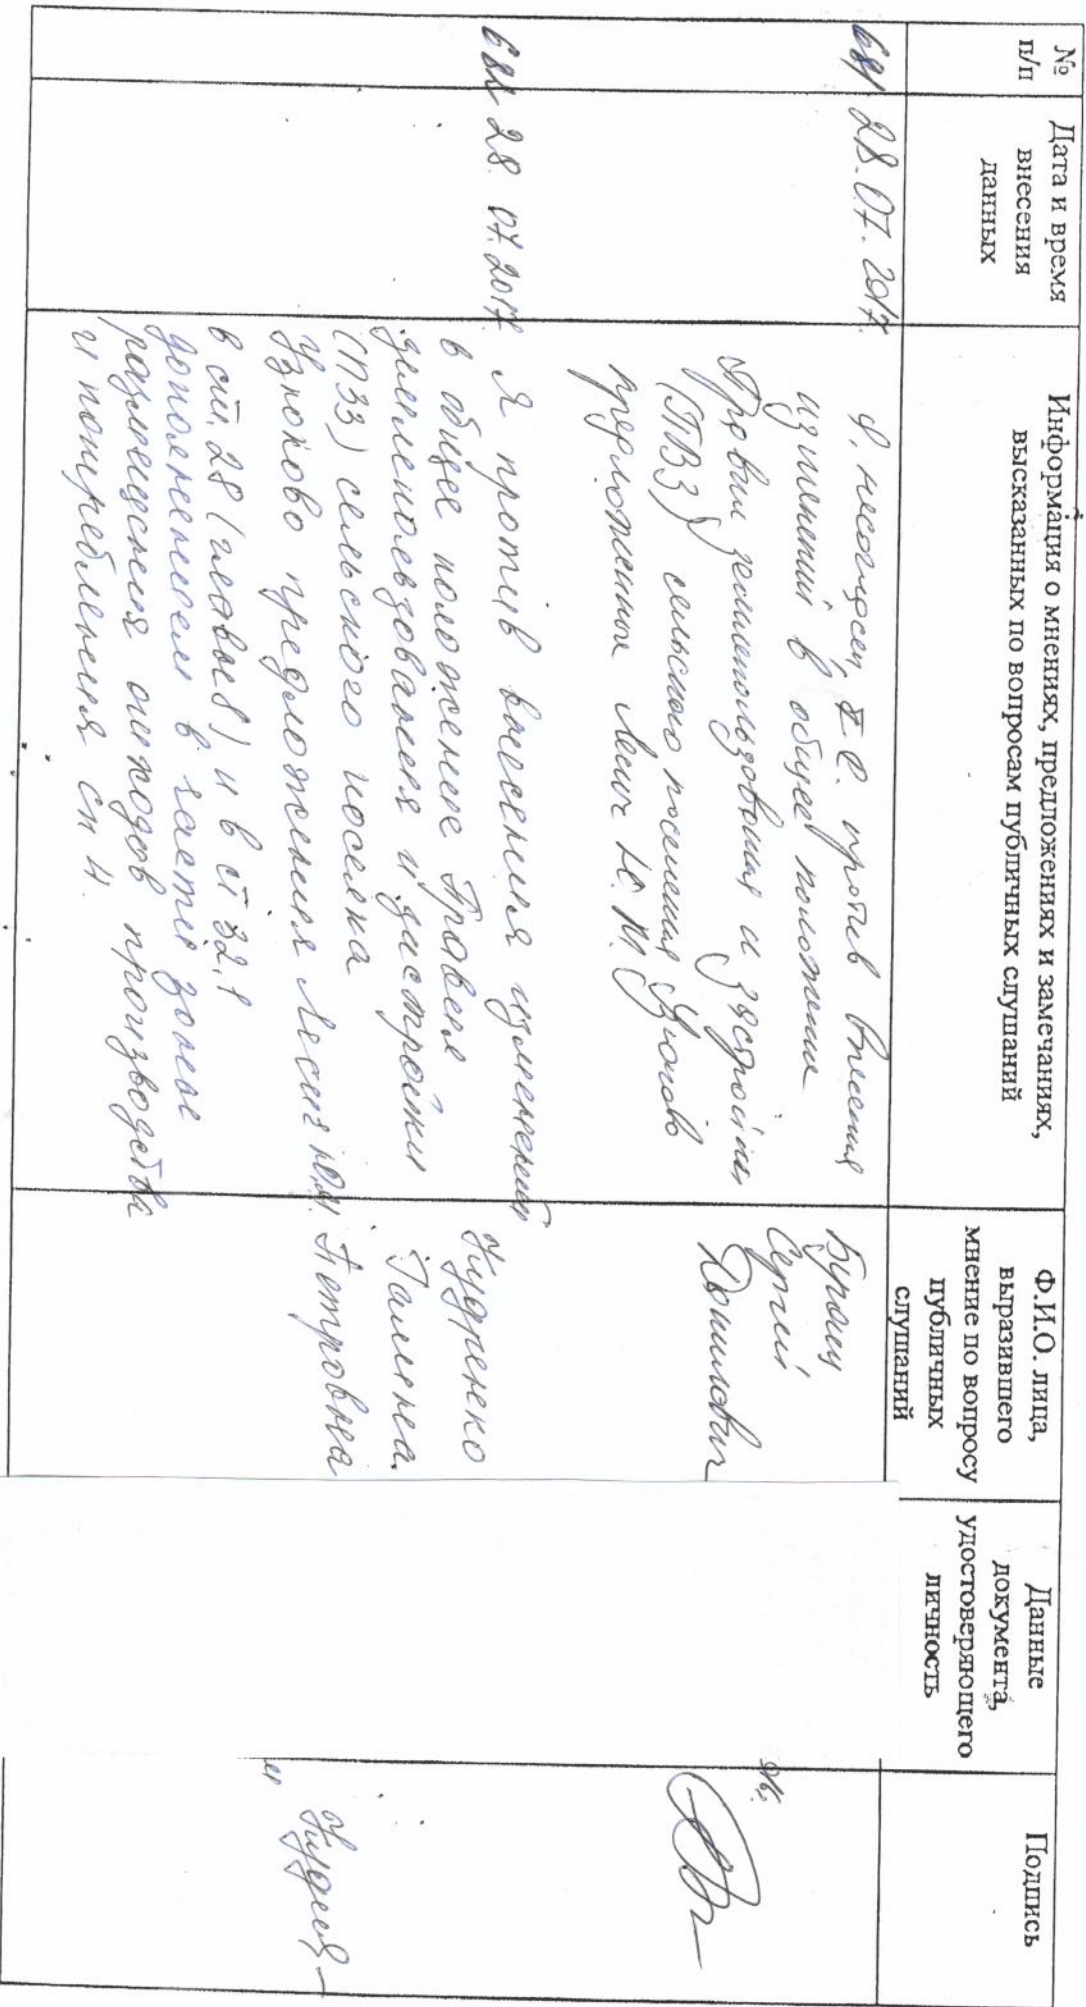 №
п/п
Дата и время
внесения
данных
Информация о мнениях, предложениях и замечаниях,
высказанных по вопросам публичных слушаний
Ф.И.О. лица,
выразившего
мнение по вопросу
публичных
слушаний
Данные
документа,
удостоверяющего
личность
Подпись
681
28.07.2017.
Я, несогласен, т.е. против внесения
изменений в общее положение
Правил землепользования и застройки
(ПВЗ) сельского поселения Узюково
предложенных Лесич Ю.М.
Сергей
Данилович
682
28.07.2017.
Я против внесения изменений
в общее положение Правила
землепользования и застройки
(ПЗЗ) сельского поселка
Узюково предложения Лесич Ю.М.
в ст. 28 (глава 8) и в ст 32,1
дополнением в части зоны
размещения отходов производства
и потребления Сп 4.
Галина
Петровна